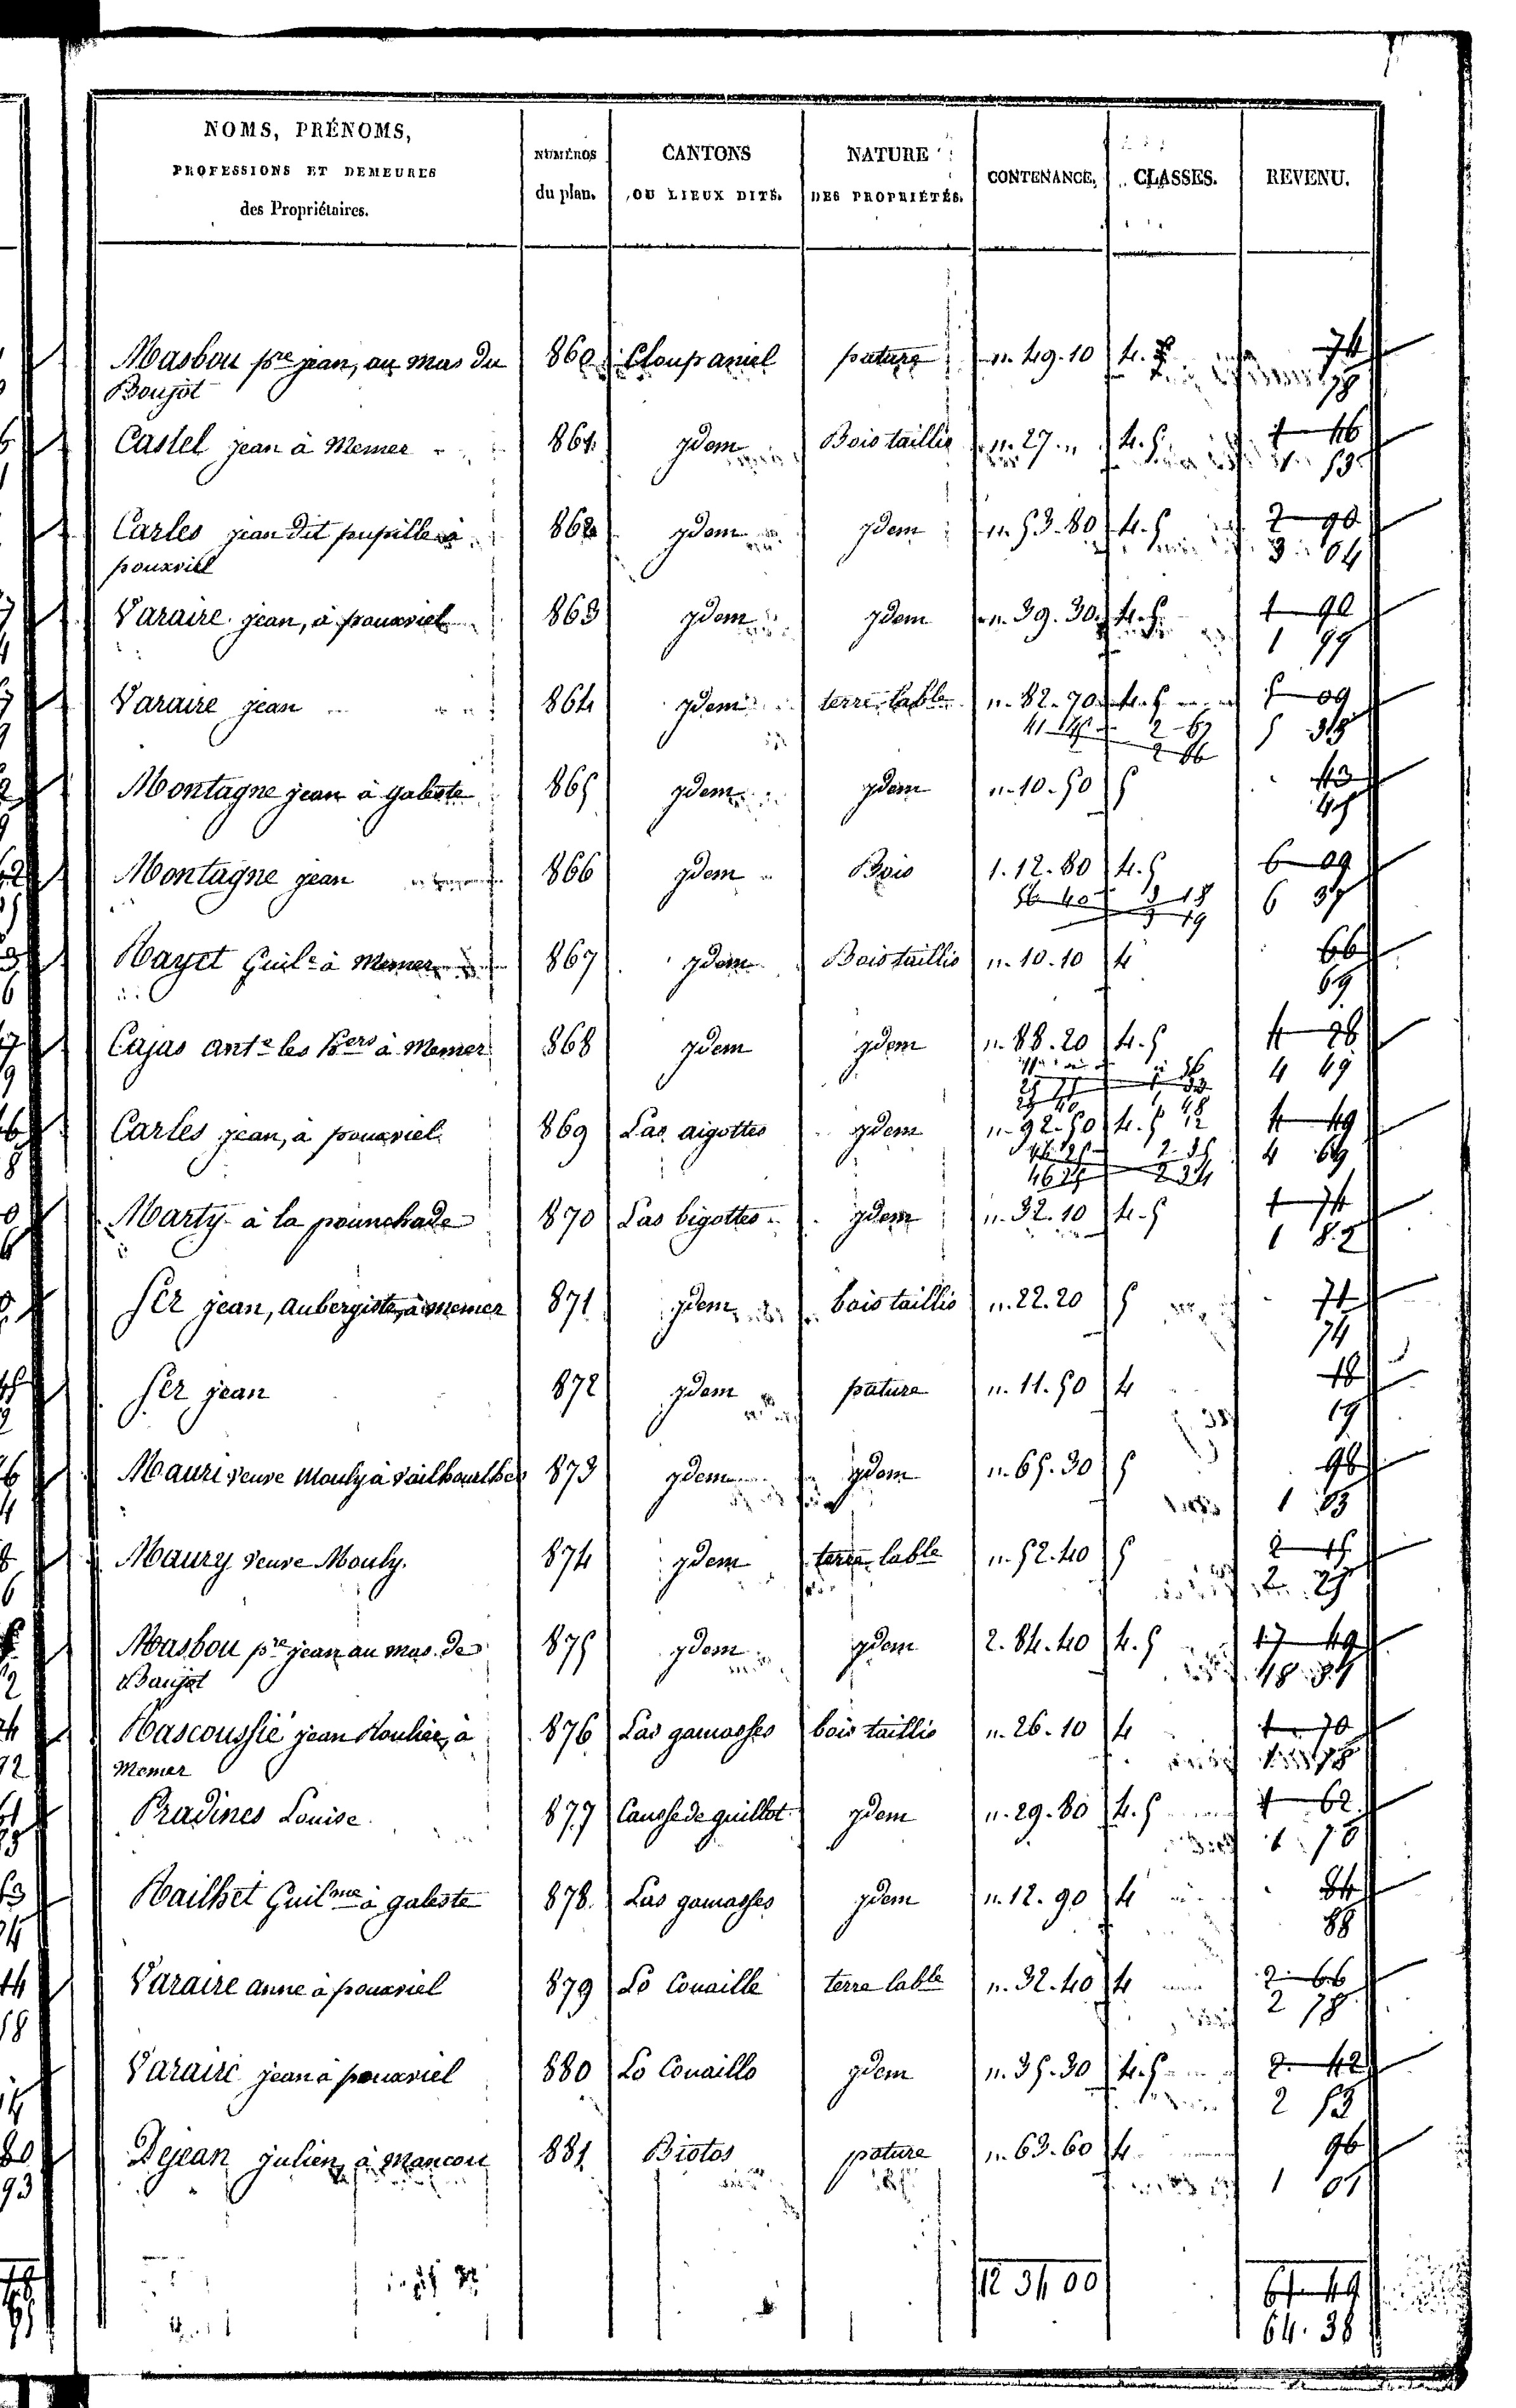 NOMS, PRÉNOMS, PROFESSIONS ET DEMEURES des Propriétaires. NUMÉROS du plan. CANTONS OU LIEUX DITS. NATURE DES PROPRIÉTÉS. CONTENANCE. CLASSES. REVENU.
Masbou pre jean, au mas du 860 Cloup aniel pature n. 49. 10 4. 74
Boujot 78
Castel jean à Memer 861 ydem Bois taillis n. 27. " 4. 5 1 46
1 53
Carles jean dit pupille à 862 ydem ydem n. 53. 80 4. 5 2 90
pouxviel 3 04
Varaire jean, à pouxviel 863 ydem ydem n. 39. 30 4. 5 1 90
1 99
Varaire jean 864 ydem terre lable n. 82. 70 4. 5 5 09
2 67 5 35
2 66
Montagne jean à galeste 865 ydem ydem n. 10. 50 5 43
45
Montagne jean 866 ydem Bois 1. 12. 80 4. 5 6 09
56 40 3 18 6 37
3 19
Rayet Guile à Memer 867 ydem Bois taillis n. 10. 10 4 66
69
Cajas ante les hers à Memer 868 ydem ydem n. 88. 20 4. 5 4 28
4 49
Carles jean, à pouxviel 869 Las aigottes ydem n. 92. 50 4. 5 4 49
46 25 2 35 4 69
46 25 2 34
Marty à la pounchade 870 Las bigottes ydem n. 32. 10 4. 5 1 74
1 82
Ser jean, aubergiste, à memer 871 ydem bois taillis n. 22. 20 5 71
74
Ser jean 872 ydem pature n. 11. 50 4 18
19
Mauri veuve Mouly à Vailhourlhes 873 ydem ydem n. 65. 30 5 98
1 03
Maury veuve Mouly. 874 ydem terre lable n. 52. 40 5 2 15
2 25
Masbou pre jean au mas de 875 ydem ydem 2. 84. 40 4. 5 17 49
Baujot 18 34
Rascoussié jean Roulier, à 876 Las gamasses bois taillis n. 26. 10 4 1 70
Memer 1 78
Pradines Louise 877 Causse de guillot ydem n. 29. 80 4. 5 1 62
1 70
Railhet Guilme à galeste 878 Las gamasses ydem n. 12. 90 4 84
88
Varaire anne à pouxviel 879 Lo Couaille terre lable n. 32. 40 4 2 66
2 78
Varaire jean à pouxviel 880 Lo Couaillo ydem n. 35. 30 4. 5 2 42
2 53
Dejean julien, à Mancou 881 Biotos pature n. 63. 60 4 96
1 01
12 34 00 61 49
64. 38